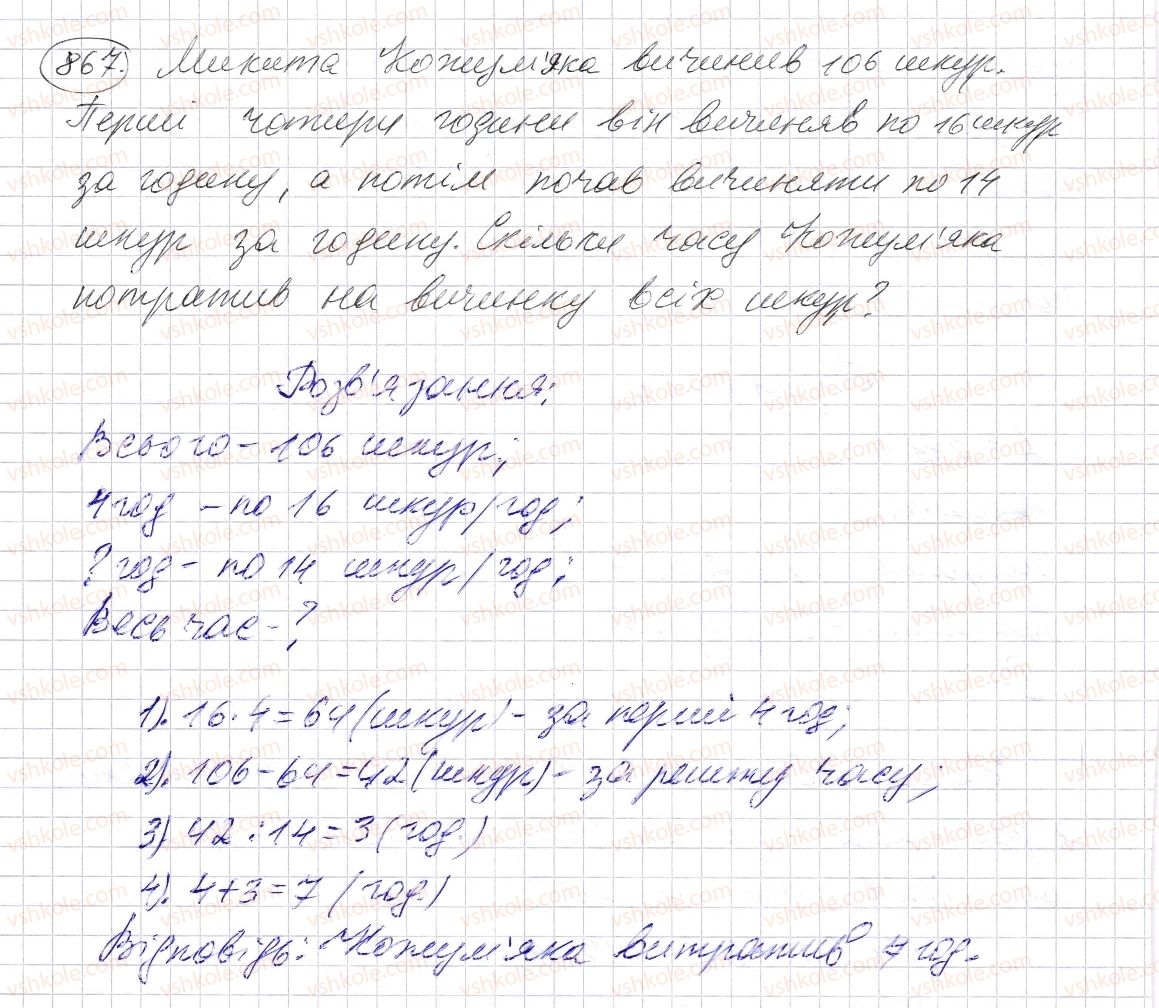 867. Микита Кожум'яка вичинив 106 шкур.
Перші чотири години він вичиняв по 16 шкур
за годину, а потім почав вичиняти по 14
шкур за годину. Скільки часу Кожум'яка
потратив на вичинку всіх шкур?
Розв'язання:
Всього - 106 шкур;
4 год - по 16 шкур/год;
? год - по 14 шкур/год;
Весь час - ?
1). 16·4=64 (шкур) - за перші 4 год;
2). 106-64=42 (шкур) - за решту часу;
3) 42:14=3 (год.)
4). 4+3=7 (год.)
Відповідь: Кожум'яка витратив 7 год.